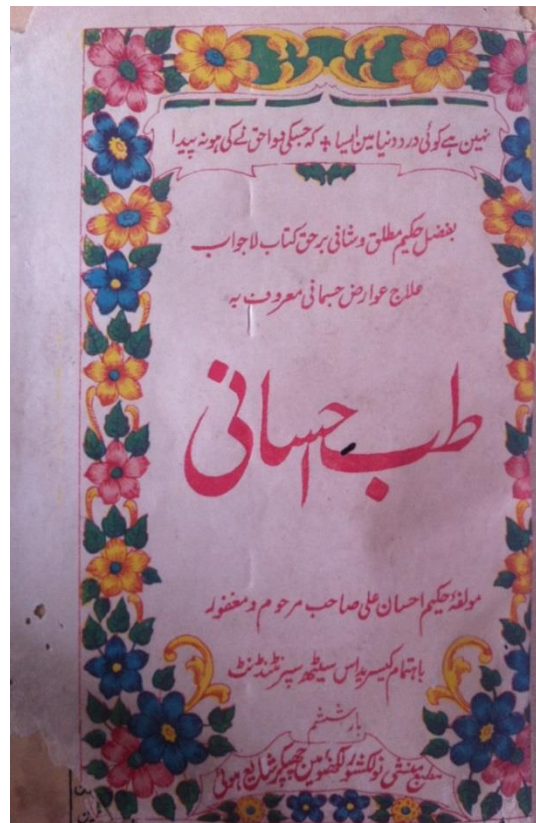 نہین ہے کوئی درد دنیا مین ایسا ٭ کہ جسکی دوا حق نے کی ہو نہ پیدا
بفضل حکیم مطلق و شافی برحق کتاب لاجواب
علاج عوارض جسمانی معروف بہ
طب احسانی
مولفۂ حکیم احسان علی صاحب مرحوم و مغفولہ
باہتمام کیسریداس سیٹھ سپرنٹنڈنٹ
بار ششم
مطبع منشی نولکشور لکھنؤ مین چھپکر شایع ہوئی